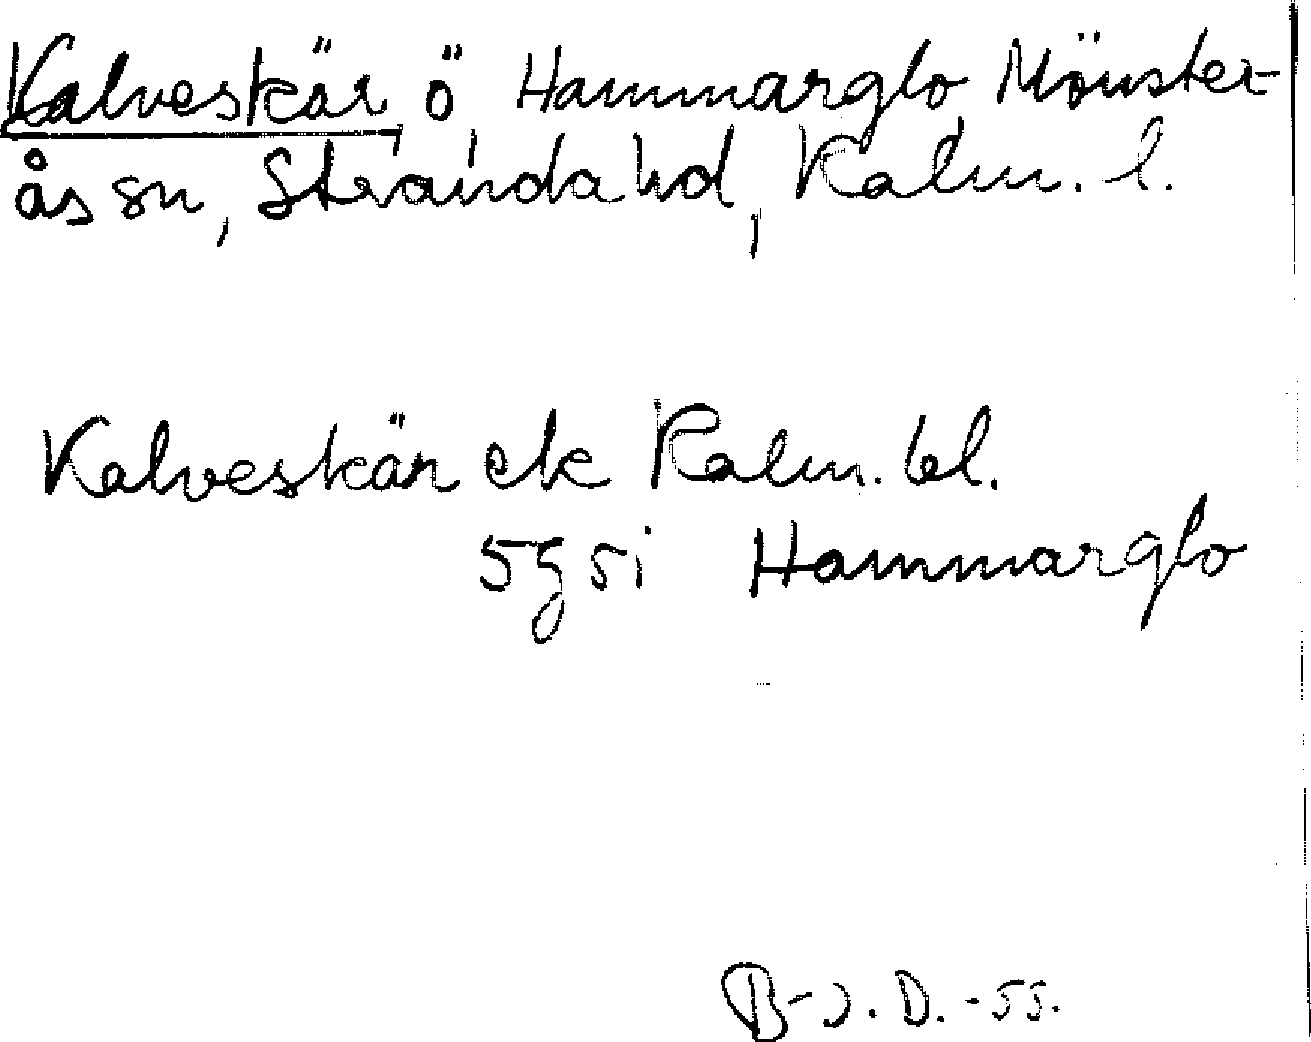 Kalveskär, ö, Hammarglo Mönster-
ås sn, Stranda hd, Kalm. l.
Kalveskär ek Kalm. bl.
5g 5i Hammarglo
B-J. D. -55.